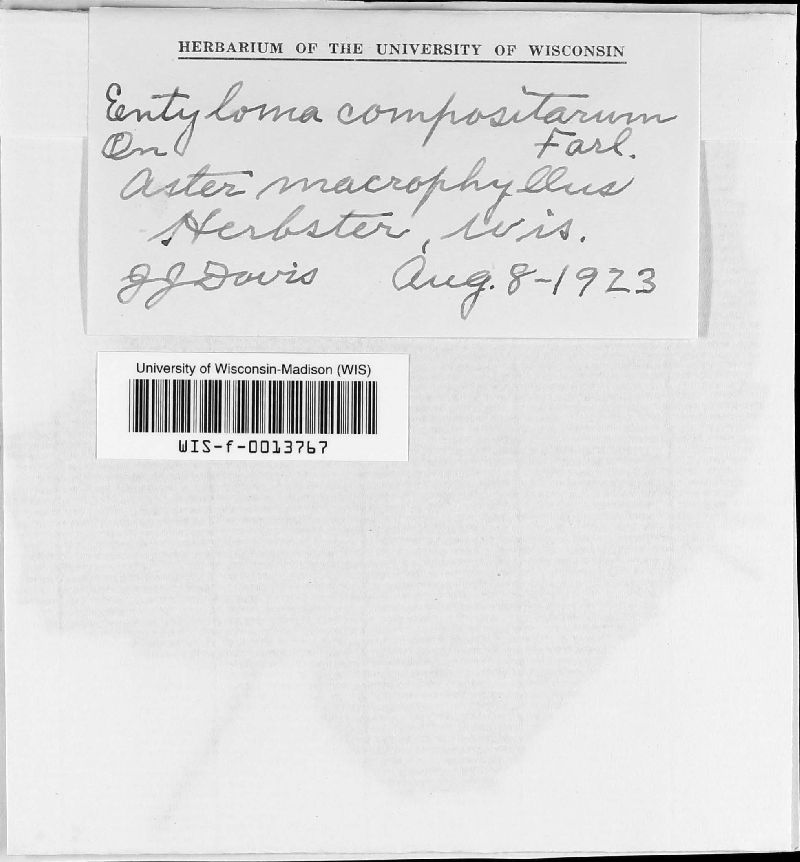 HERBARIUM OF THE UNIVERSITY OF WISCONSIN
Entyloma compositarum
Farl.
On
Aster macrophyllus
Herbster, Wis.
JJ Davis Aug. 8-1923
University of Wisconsin-Madison (WIS)
WIS-f-0013767